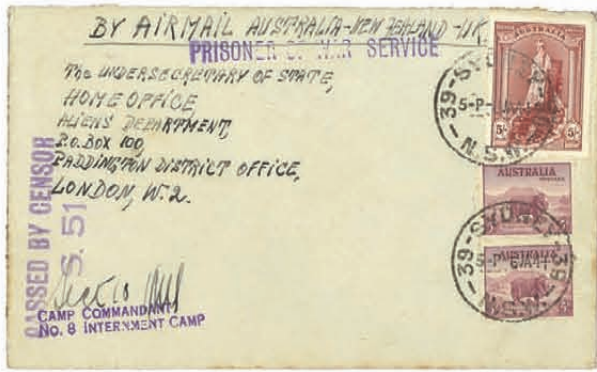 BY AIRMAIL AUSTRALIA-NEW ZEALAND-UK
PRISONER OF WAR SERVICE
The UNDERSECRETARY OF STATE,
HOME OFFICE,
ALIENS' DEPARTMENT,
P.O. BOX 100,
PADDINGTON DISTRICT OFFICE,
LONDON, W.2.
PASSED BY CENSOR
S. 51
CAMP COMMANDANT
No. 8 INTERNMENT CAMP
AUSTRALIA
5/- 5/-
39-SYDNEY-39
N.S.W.
AUSTRALIA
AUSTRALIA
39-SYDNEY-39
N.S.W.